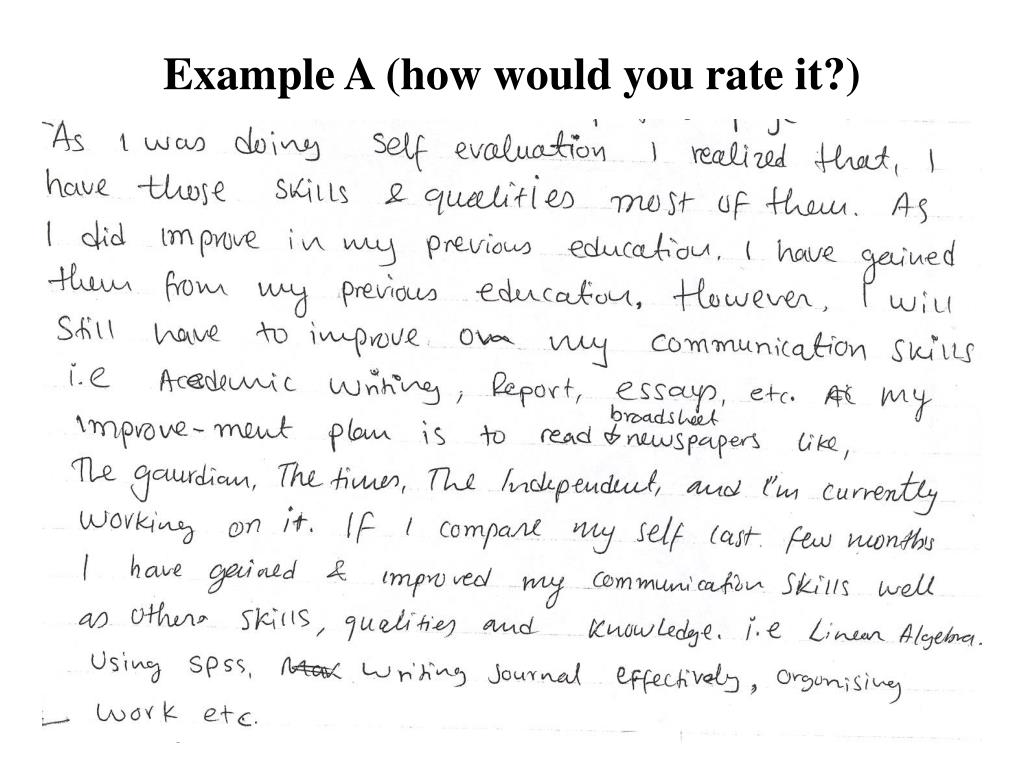 Example A (how would you rate it?)
"As I was doing self evaluation I realized that, I
have those skills & qualities most of them. As
I did improve in my previous education. I have geined
them from my previous education, However, I will
Still have to improve on my communication skills
i.e Academic writing, Report, essays, etc. my
improve-ment plan is to read broadsheet newspapers like,
The gaurdian, The times, The Independent, and I'm currently
working on it. IF I compare my self last few months
I have geined & improved my communication skills well
as others skills, qualities and knowledge. i.e Linear Algebra.
Using SPSS, writing Journal effectively, organising
work etc.